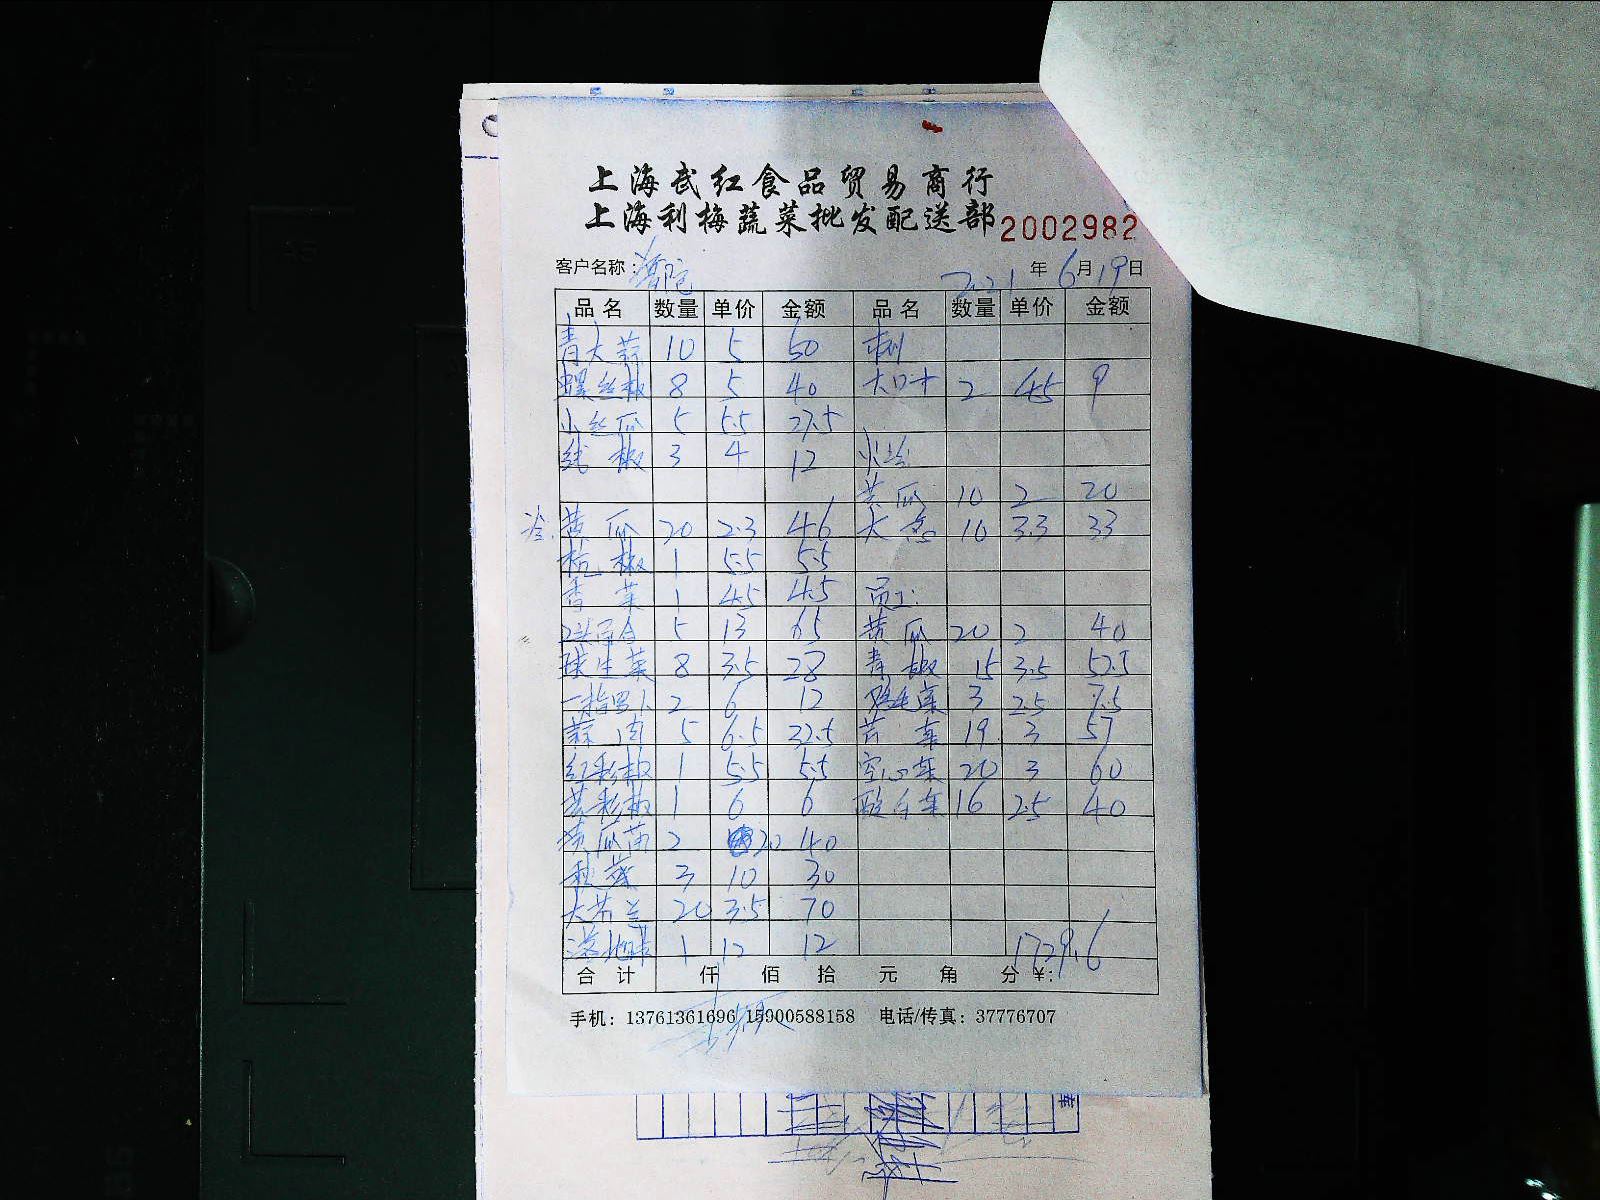 上海武红食品贸易商行
上海利梅蔬菜批发配送部 2002982
客户名称： 2021年6月19日
品名 数量 单价 金额 品名 数量 单价 金额
青大蒜 10 5 50
螺丝椒 8 5 40 大口十 2 4.5 9
小丝瓜 5 5.5 27.5
线椒 3 4 12
黄瓜 10 2 20
冷 黄瓜 20 2.3 46 大葱 10 3.3 33
杭椒 1 5.5 5.5
香菜 1 4.5 4.5 员工
5 13 65 黄瓜 20 2 40
球生菜 8 3.5 28 青椒 15 3.5 52.5
一指罗卜 2 6 12 鸡毛菜 3 2.5 7.5
蒜肉 5 6.5 32.5 芹菜 19 3 57
红彩椒 1 5.5 5.5 空心菜 20 3 60
黄彩椒 1 6 6 16 2.5 40
黄瓜苗 2 20 40
秋葵 3 10 30
大芥兰 20 3.5 70
1 12 12 1729.6
合计 仟 佰 拾 元 角 分 ¥:
手机：13761361696 15900588158 电话/传真：37776707